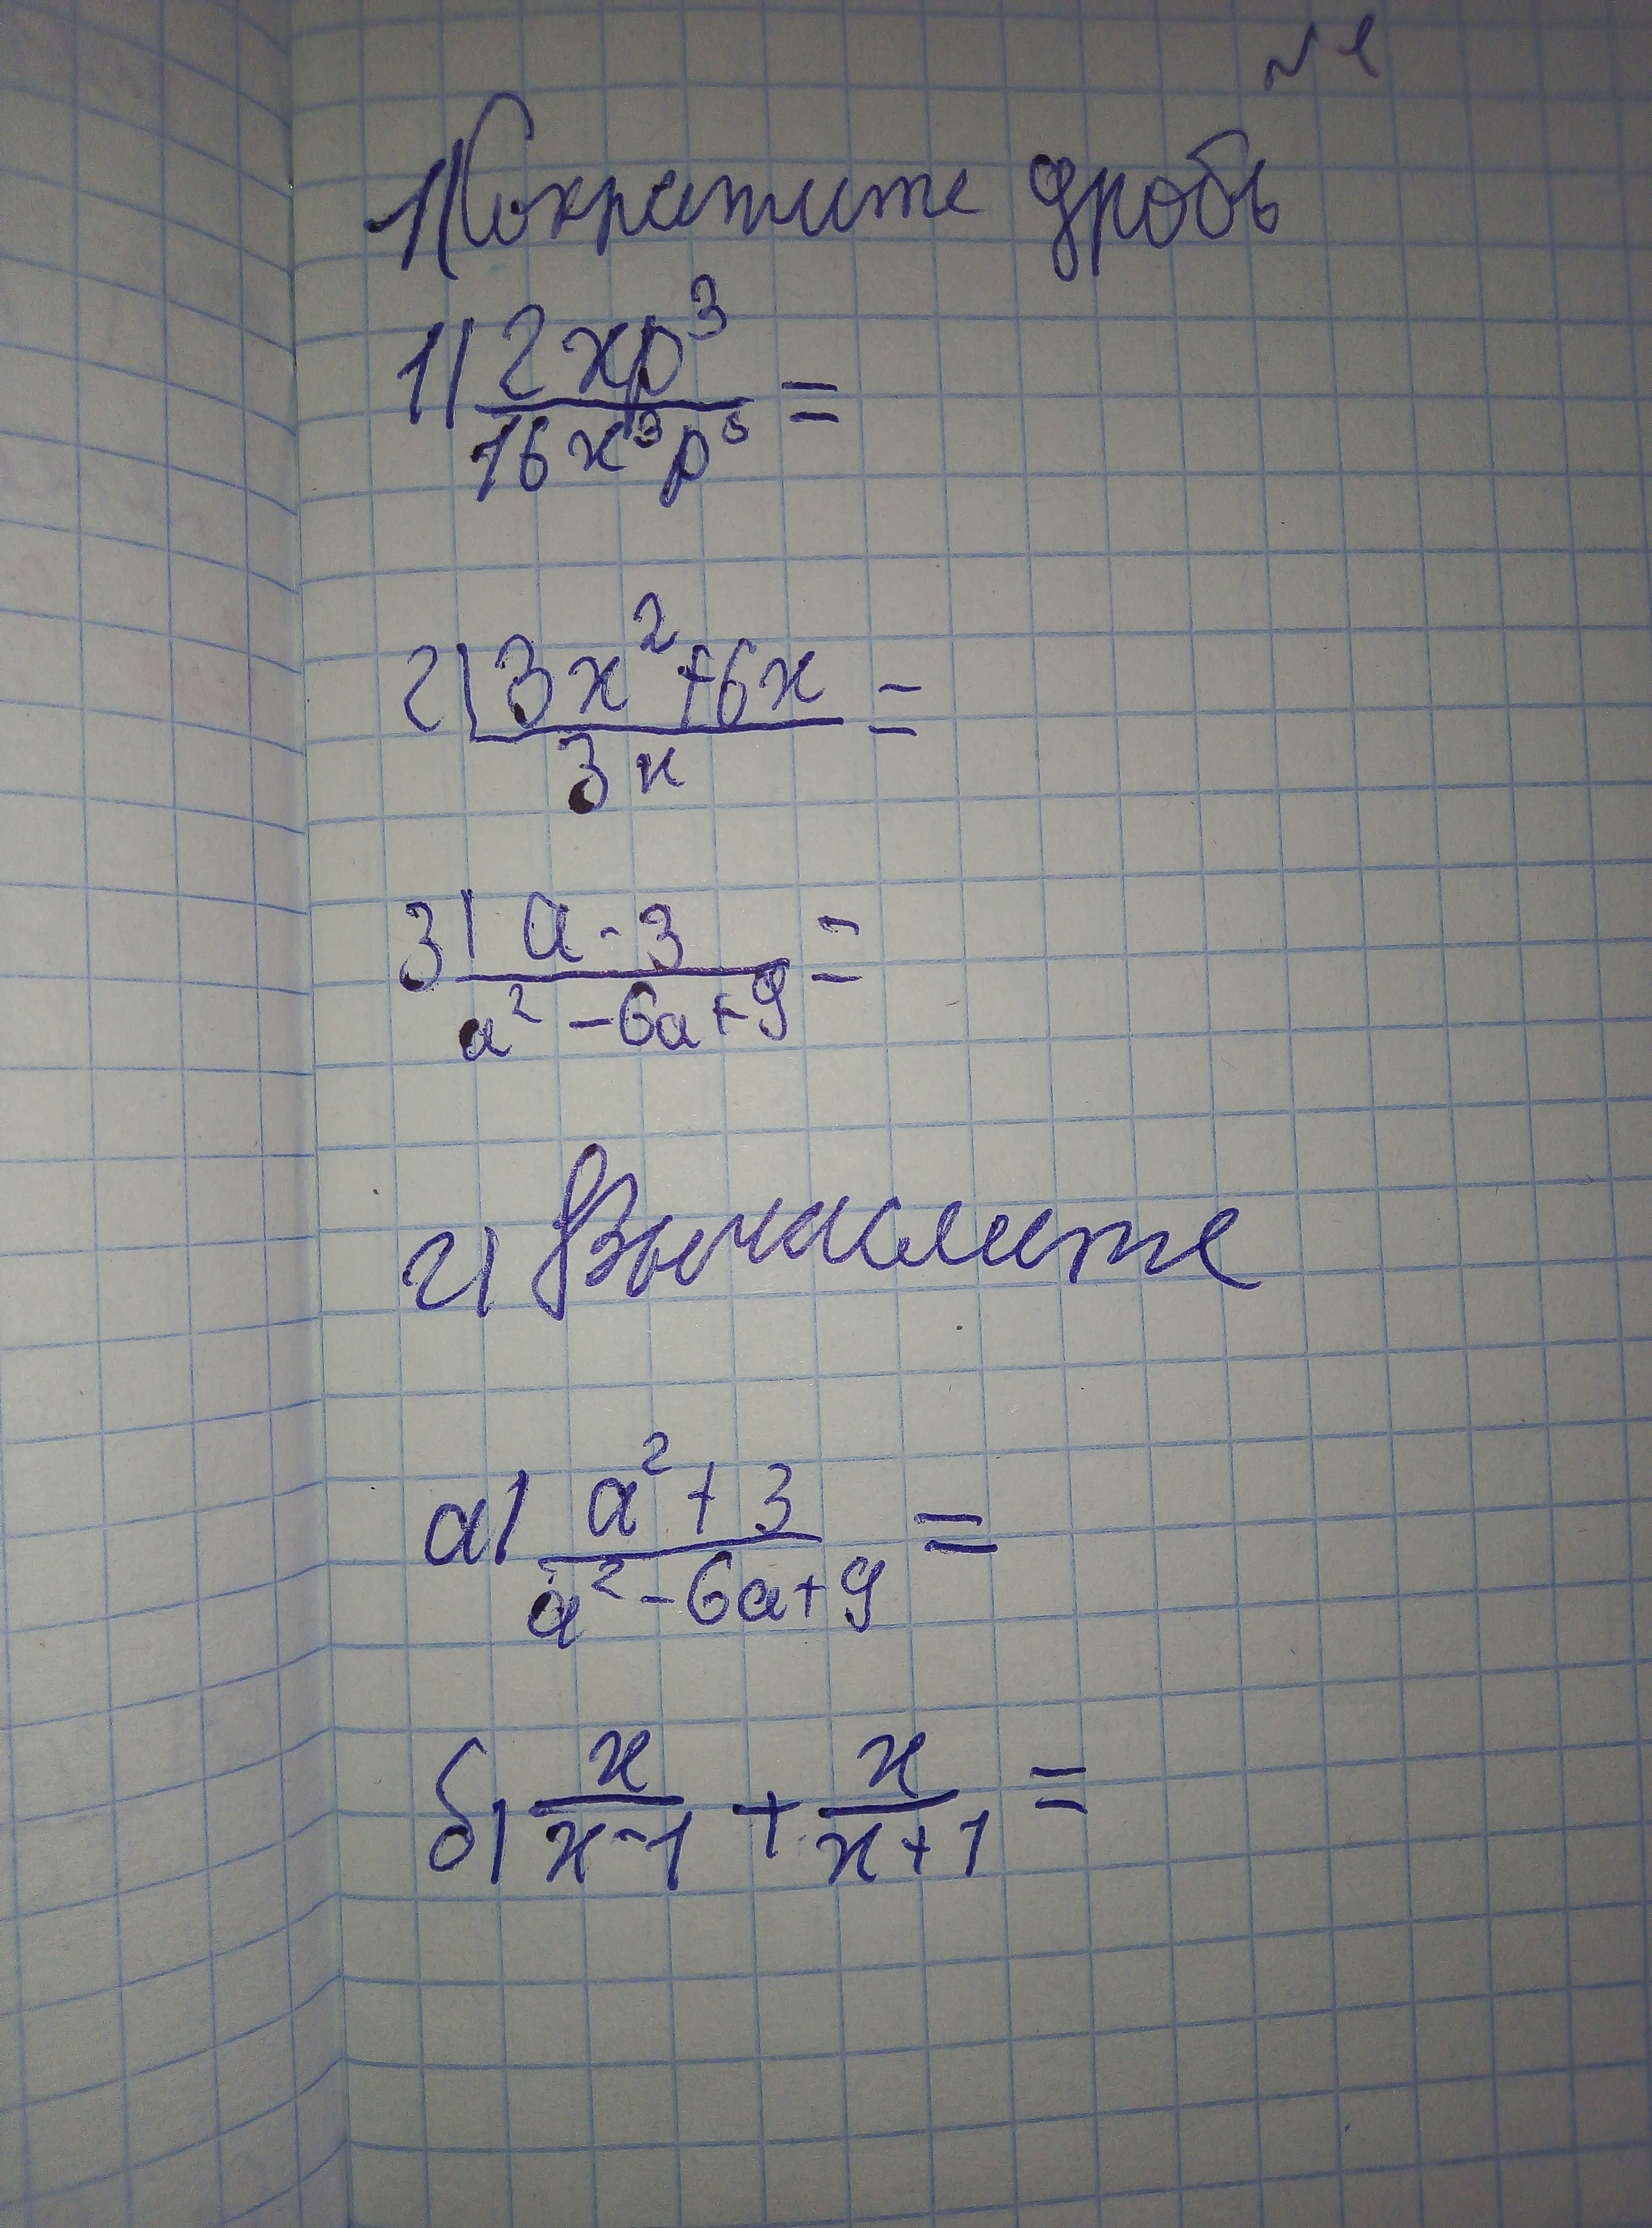 №1
1) Сократите дробь
1) 2xp³ / 16x³p⁵ =
2) 3x² + 6x / 3x =
3) a - 3 / a² - 6a + 9 =
2) Вычислите
а) a² + 3 / a² - 6a + 9 =
б) x / x-1 + x / x+1 =